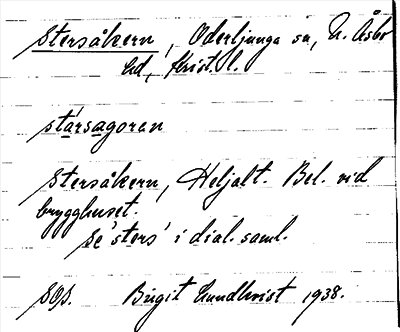 Stersåkern, Oderljunga sn, N. Åsbo
hd, Krist. l.
stársagoren
Stersåkern, Heljalt. Bel. vid
brygghuset.
Se 'sters' i dial. saml.
SOJ. Birgit Lundkvist 1938.